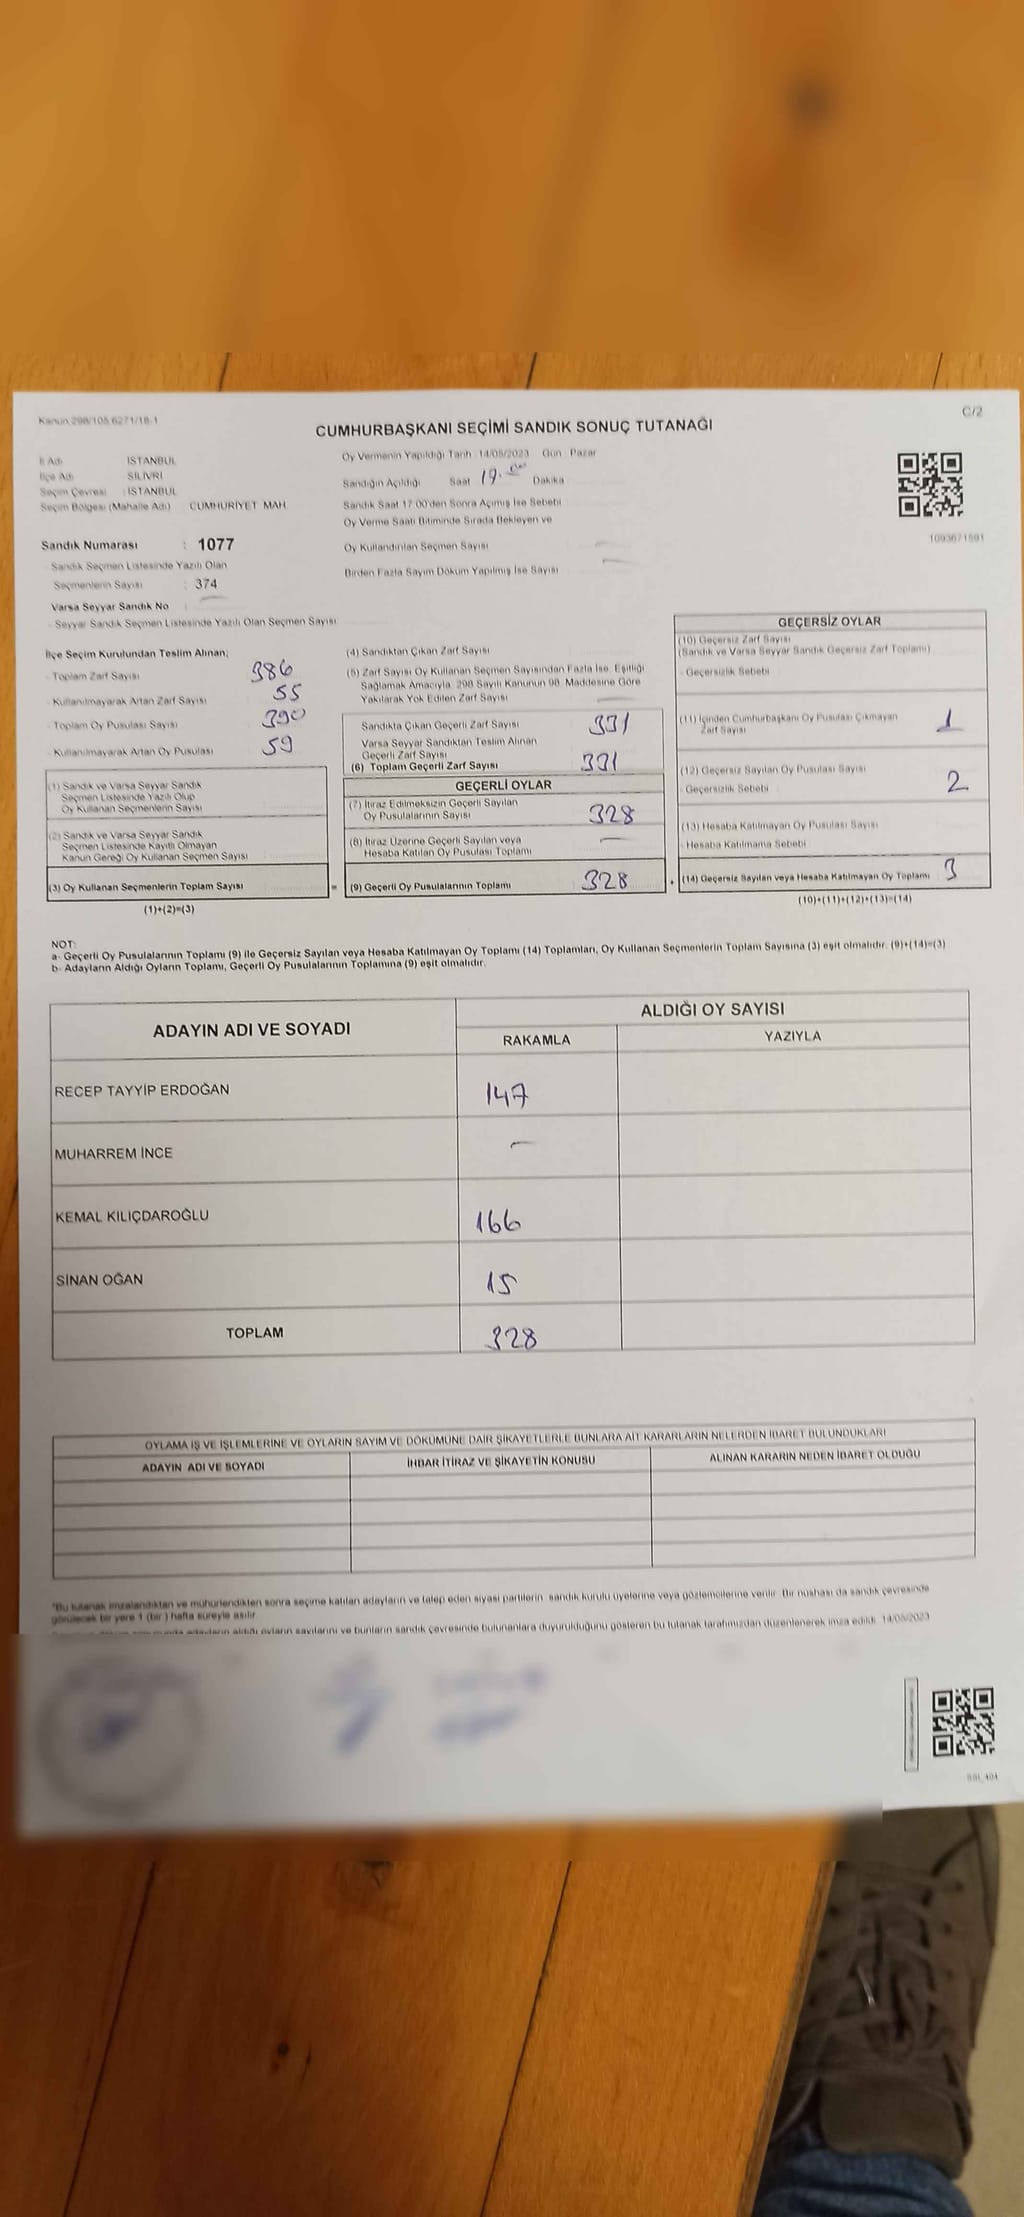 Kanun:298/105,6271/18-1
C/2
CUMHURBAŞKANI SEÇİMİ SANDIK SONUÇ TUTANAĞI
İl Adı : İSTANBUL
İlçe Adı : SİLİVRİ
Seçim Çevresi : İSTANBUL
Seçim Bölgesi (Mahalle Adı) : CUMHURİYET MAH.
Oy Vermenin Yapıldığı Tarih : 14/05/2023 Gün : Pazar
Sandığın Açıldığı Saat 17.00 Dakika
Sandık Saat 17:00'den Sonra Açımış İse Sebebi
Oy Verme Saati Bitiminde Sırada Bekleyen ve
Oy Kullandırılan Seçmen Sayısı
Birden Fazla Sayım Döküm Yapılmış İse Sayısı
1093671591
Sandık Numarası : 1077
- Sandık Seçmen Listesinde Yazılı Olan
Seçmenlerin Sayısı : 374
Varsa Seyyar Sandık No :
- Seyyar Sandık Seçmen Listesinde Yazılı Olan Seçmen Sayısı
İlçe Seçim Kurulundan Teslim Alınan;
- Toplam Zarf Sayısı 386
- Kullanılmayarak Artan Zarf Sayısı 55
- Toplam Oy Pusulası Sayısı 390
- Kullanılmayarak Artan Oy Pusulası 59
(1) Sandık ve Varsa Seyyar Sandık
Seçmen Listesinde Yazılı Olup
Oy Kullanan Seçmenlerin Sayısı
(2) Sandık ve Varsa Seyyar Sandık
Seçmen Listesinde Kayıtlı Olmayan
Kanun Gereği Oy Kullanan Seçmen Sayısı
(3) Oy Kullanan Seçmenlerin Toplam Sayısı
(1)+(2)=(3)
(4) Sandıktan Çıkan Zarf Sayısı
(5) Zarf Sayısı Oy Kullanan Seçmen Sayısından Fazla İse, Eşitliği
Sağlamak Amacıyla; 298 Sayılı Kanunun 98. Maddesine Göre
Yakılarak Yok Edilen Zarf Sayısı
Sandıkta Çıkan Geçerli Zarf Sayısı 331
Varsa Seyyar Sandıktan Teslim Alınan
Geçerli Zarf Sayısı
(6) Toplam Geçerli Zarf Sayısı 331
GEÇERLİ OYLAR
(7) İtiraz Edilmeksizin Geçerli Sayılan
Oy Pusulalarının Sayısı 328
(8) İtiraz Üzerine Geçerli Sayılan veya
Hesaba Katılan Oy Pusulası Toplamı
= (9) Geçerli Oy Pusulalarının Toplamı 328
GEÇERSİZ OYLAR
(10) Geçersiz Zarf Sayısı
(Sandık ve Varsa Seyyar Sandık Geçersiz Zarf Toplamı)
- Geçersizlik Sebebi
(11) İçinden Cumhurbaşkanı Oy Pusulası Çıkmayan
Zarf Sayısı 1
(12) Geçersiz Sayılan Oy Pusulası Sayısı 2
- Geçersizlik Sebebi
(13) Hesaba Katılmayan Oy Pusulası Sayısı
- Hesaba Katılmama Sebebi
+ (14) Geçersiz Sayılan veya Hesaba Katılmayan Oy Toplamı 3
(10)+(11)+(12)+(13)=(14)
NOT:
a- Geçerli Oy Pusulalarının Toplamı (9) ile Geçersiz Sayılan veya Hesaba Katılmayan Oy Toplamı (14) Toplamları, Oy Kullanan Seçmenlerin Toplam Sayısına (3) eşit olmalıdır. (9)+(14)=(3)
b- Adayların Aldığı Oyların Toplamı, Geçerli Oy Pusulalarının Toplamına (9) eşit olmalıdır.
ADAYIN ADI VE SOYADI
ALDIĞI OY SAYISI
RAKAMLA YAZIYLA
RECEP TAYYİP ERDOĞAN 147
MUHARREM İNCE —
KEMAL KILIÇDAROĞLU 166
SİNAN OĞAN 15
TOPLAM 328
OYLAMA İŞ VE İŞLEMLERİNE VE OYLARIN SAYIM VE DÖKÜMÜNE DAİR ŞİKAYETLERLE BUNLARA AİT KARARLARIN NELERDEN İBARET BULUNDUKLARI
ADAYIN ADI VE SOYADI İHBAR İTİRAZ VE ŞİKAYETİN KONUSU ALINAN KARARIN NEDEN İBARET OLDUĞU
*Bu tutanak imzalandıktan ve mühürlendikten sonra seçime katılan adayların ve talep eden siyasi partilerin sandık kurulu üyelerine veya gözlemcilerine verilir. Bir nüshası da sandık çevresinde
görülecek bir yere 1 (bir) hafta süreyle asılır.
adayların aldığı oyların sayılarını ve bunların sandık çevresinde bulunanlara duyurulduğunu gösteren bu tutanak tarafımızdan düzenlenerek imza edildi. 14/05/2023